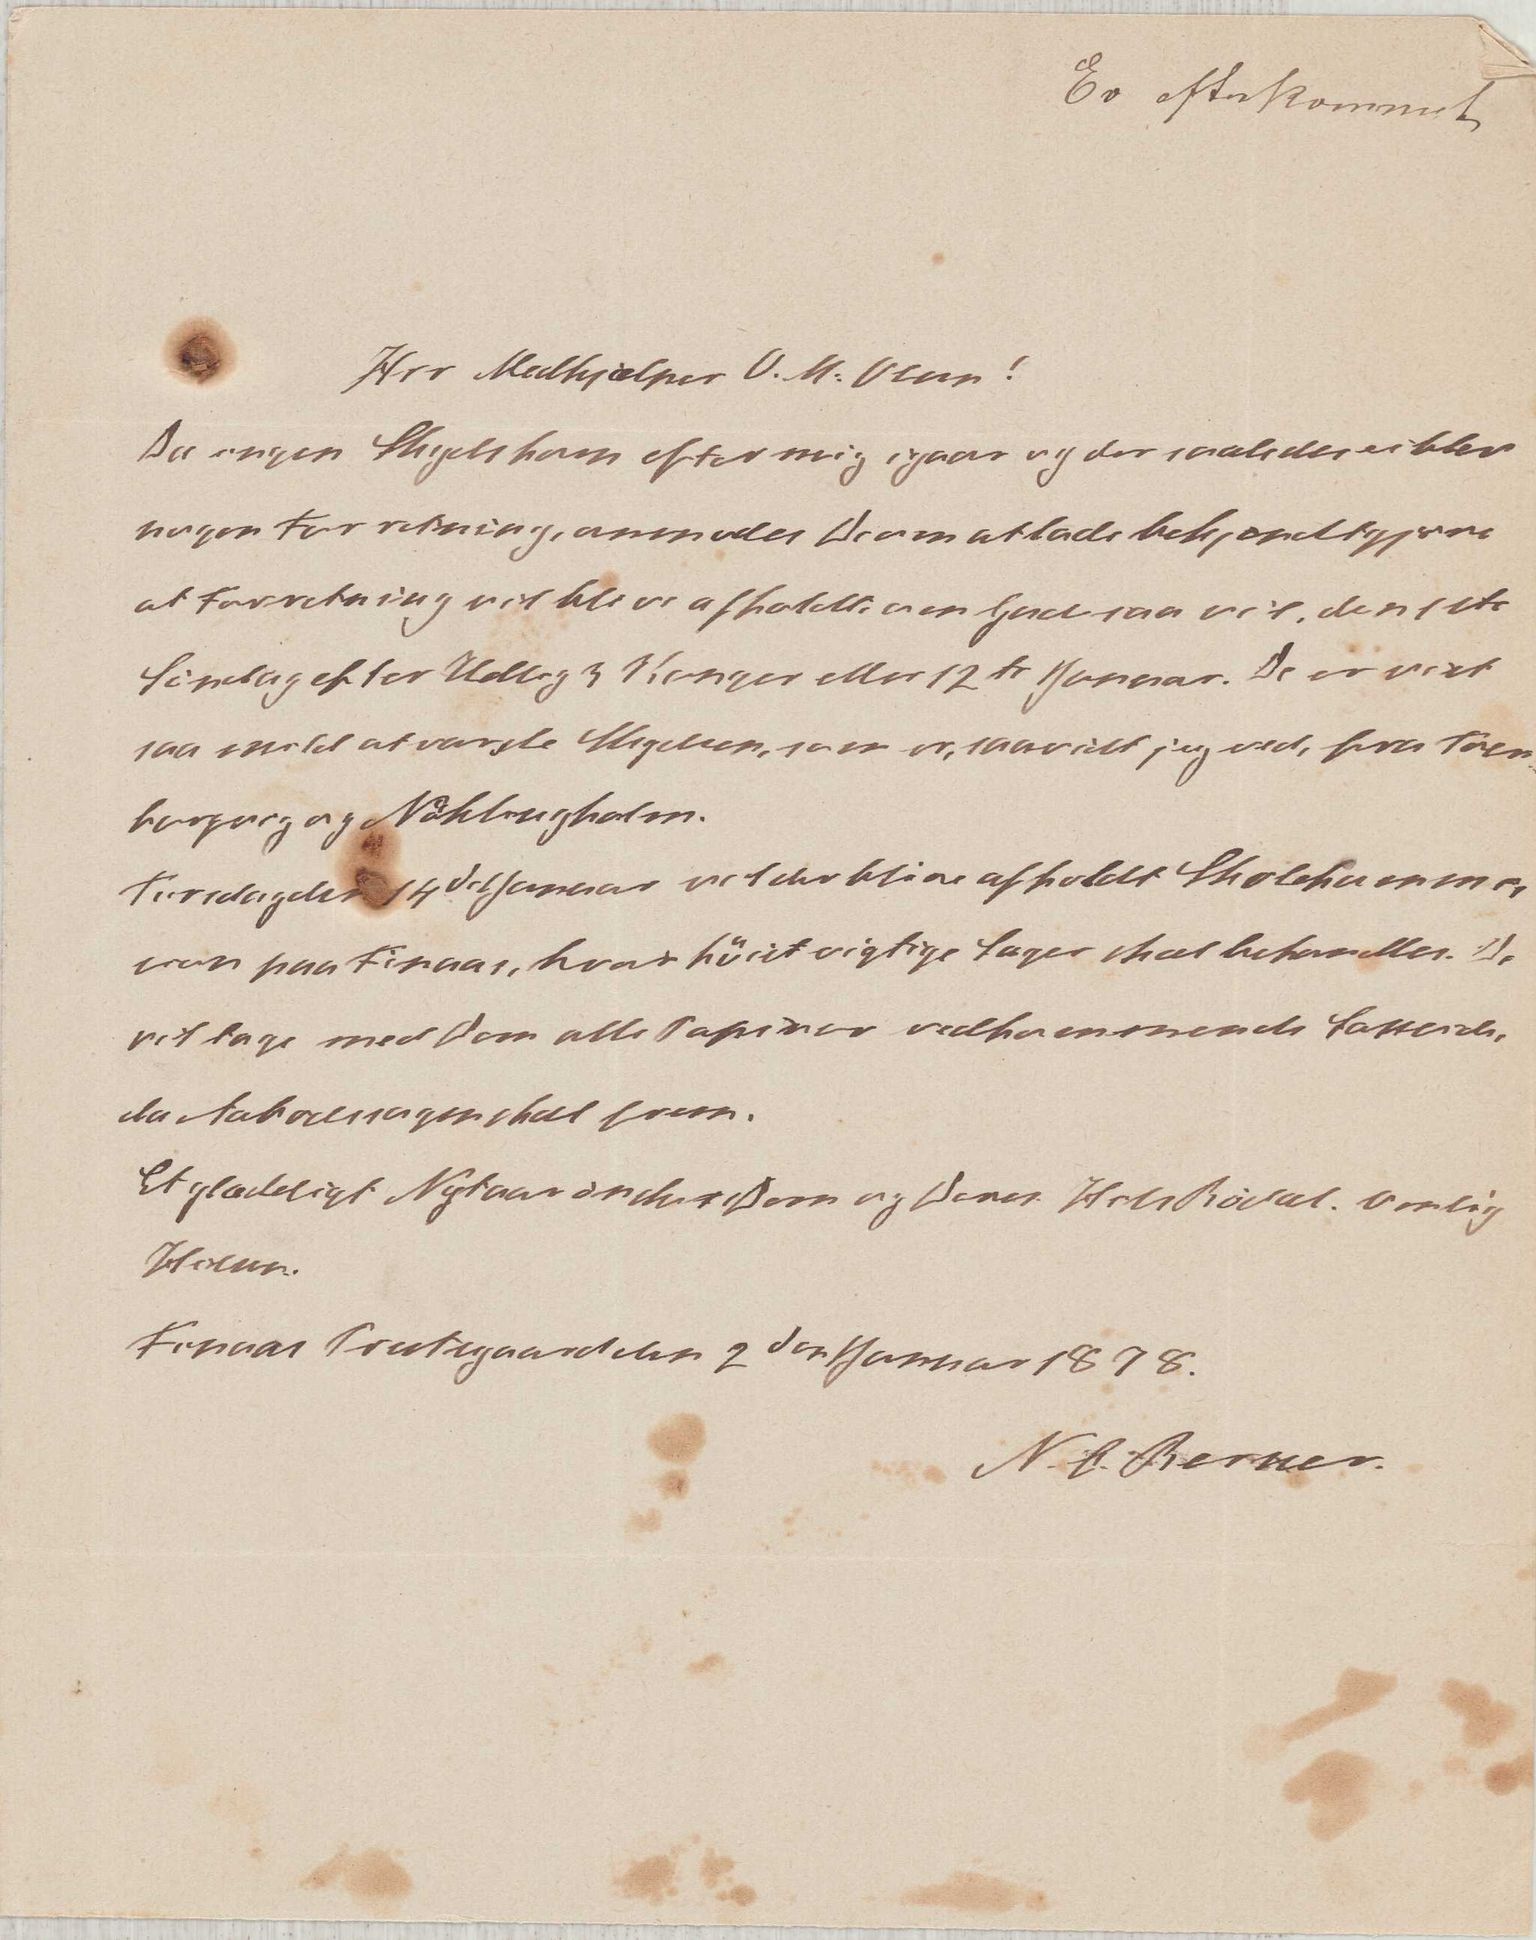 Er efterkommet
Hrr Medhjælper O. M. Olsen!
Da ingen Skyds kom efter mig igaar og der saaledes ei blev
nogen Forretning, anmodes De om at lade bekjendtgjøre
at Forretning vil blive afholdt, om Gud saa vil, den 1ste
Søndag efter Hellig 3 Konger eller 12te Januar. De er vist
saa snild at varsle Skydsen, som er, saavidt jeg ved, fra
borgvig og Nøklingholm.
Tirsdag den 14de Januar vil der blive afholdt Skolekommis
sion paa Finaas, hvor höist vigtige Sager skal behandles. De
vil tage med Dem alle Papirer vedkommende
da sagen skal frem.
Et glædeligt Nytaar önskes Dem og Deres Hele Bödal. Venlig
Hilsen.
Finaas Prestegaard den 2den Januar 1878.
N. C. Berner.